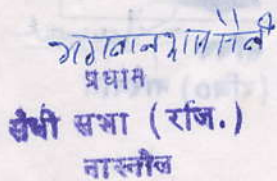 भगवानदास सैनी
प्रधान
सैनी सभा (रजि.)
नारनौल